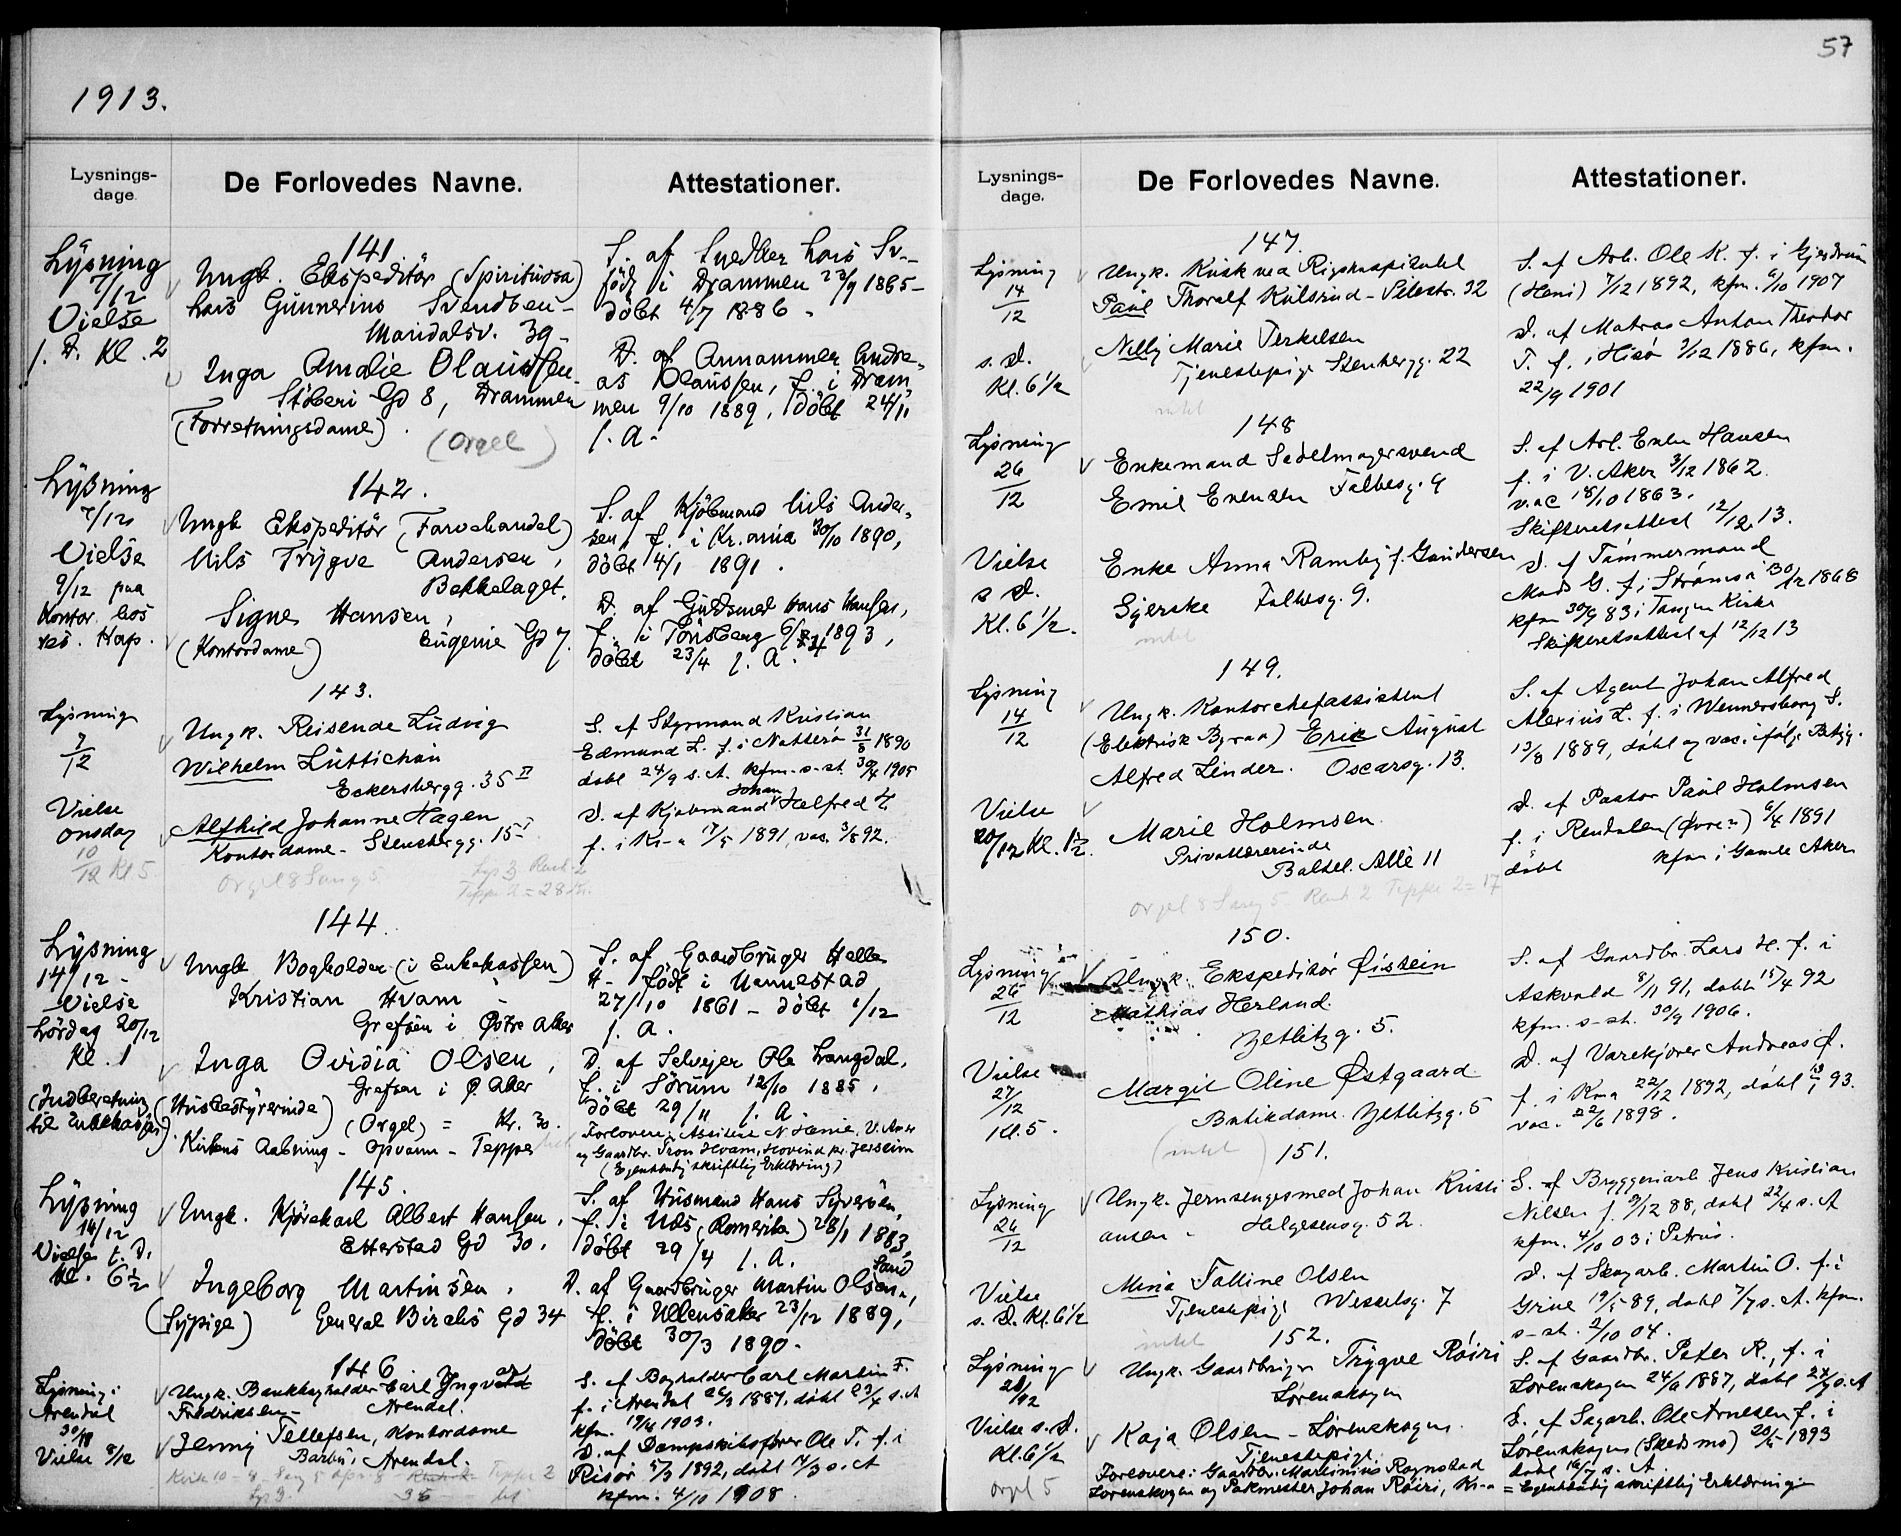 57
1913.
Lysnings-
dage.
De Forlovedes Navne.
Attestationer.
141
Lysning
7/12
Vielse
s. D. Kl. 2
Ungk. Ekspeditör (Spirituosa)
Lars Gunnerius Svendsen -
Maridalsv. 39 -
Inga Amalie Olaussen -
Stöberi Gd 8, Drammen
(Forretningsdame)
(Orgel)
S. af Snedker Lars Sv.-
född i Drammen 23/9 1865 -
döbt 4/7 1886 -
D. af Annammer Andre-
as Olaussen, f. i Dram-
men 9/10 1889, döbt 24/11
s. A.
142.
Lysning
7/12
Vielse
9/12 paa
Kontor hos
res. Kap.
Ungk Ekspeditör (Farvehandel)
Nils Trygve Andersen,
Bekkelaget.
Signe Hansen,
(Kontordame) Eugenie Gd 7.
S. af Kjöbmand Nils Ander-
sen, f. i Kr.ania 30/10 1890,
döbt 4/1 1891.
D. af Guldsmed Hans Hansen,
f. i Tönsberg 1893,
döbt 23/4 s. A.
143.
Lysning
7
12
Vielse
onsdag
10
12 Kl 5
Ungk. Reisende Ludvig
Wilhelm Lüttichau
Eckersbergg. 35 II
Alfhild Johanne Hagen
Kontordame - Stensbergg. 15 I
Orgel 8 Sang 5
S. af Styrmand Kristian
Edmund L. f. i Nötterö 31/8 1890
døbt 24/9 s. A. kfm. s-st. 30/4 1905
Johan
D. af Kjøbmand Helfred H.
f. i Kr-a 17/5 1891, vac. 3/8 92.
144.
Lysning
14/12 -
Vielse
Lördag 20/12
Kl. 1
(Indberetning
til Enkekassen).
Ungk Bogholder (i Enkekassen)
Kristian Hvam -
Grefsen i Østre Aker
Inga Ovidia Olsen,
Grefsen i Ø. Aker
(Husbestyrerinde) (Orgel) = Kr. 30.
Kirkens Aabning - Opvarm - Tepper
S. af Gaardbruger Helle
H - född i Nannestad
27/10 1861 - döbt 1/12
s. A.
D. af Selveier Ole Langdal,
f. i Sörum 12/10 1885,
döbt 29/11 s. A.
Forlovere: Assistent N. Henie, V. Aker
og Gaardbr. Tron Hvam, Hovind pr. Jessheim
(Egenhændig skriftlig Erklæring)
145.
Lysning
14/12
Vielse s. D.
Kl. 6 1/2
Ungk. Kjörekarl Albert Hansen,
Etterstad Gd 30.
Ingeborg Martinsen,
(Sypige) General Birchs Gd 34
S. af Husmand Hans Syversen,
f. i Næs (Romerike) 28/1 1883,
döbt 29/4 s. A.
D. af Gaardbruger Martin Olsen,
f. i Ullensaker 23/12 1889,
döbt 30/3 1890.
146
Lysning i
Arendal
30/11
Vielse 8/12
Ungk. Bankbogholder Carl Yngvar
Fredriksen - Arendal.
Jenny Tellefsen, Kontordame
Barbu, Arendal.
S. af Bogholder Carl Martin F.
f. i Arendal 26/3 1887, døbt s. A
kfm. 1903.
D. af Dampskibsfører Ole T. f. i
Risør 5/3 1892, døbt s. A
kfm. 4/10 1908.
Lysnings-
dage.
De Forlovedes Navne.
Attestationer.
147.
Lysning
14
12
s. D.
Kl. 6 1/2
Ungk. Kusk ved Rigshospitalet
Paul Thoralf Kulsrud - Pilestr. 32
Nelly Marie Terkelsen
Tjenestepige Stensbergg. 22
intet
S. af Arb. Ole K. f. i Gjerdrum
(Heni) 7/12 1892, kfm. 6/10 1907
D. af Matros Anton Theodor
T. f. i Hisø 7/12 1886, kfm.
22/9 1901
148
Lysning
26
12
Vielse
s D.
Kl. 6 1/2.
Enkemand Sadelmagersvend
Emil Evensen Falbesg. 9
Enke Anna Ramby f. Gundersen
Syerske Falbesg. 9.
intet
S. af Arb. Even Hansen
f. i V. Aker 3/12 1862.
vac 18/10 1863.
Skifteretsattest 12/12 13.
D. af Tømmermand
Mads G. f. i Strømsø 30/12 1868
kfm 30/9 83 i Tangen Kirke
Skifteretsattest af 12/12 13
149.
Lysning
14
12
Vielse
20/12 Kl. 1 1/2.
Ungk. Kontorchefassistent
(Elektrisk Byraa) Erik August
Alfred Linder. Oscarsg. 13.
Marie Holmsen.
Privatlærerinde
Balchel. Allé 11
Orgel 8 Sang 5. Rent 2 Teppe 2 = 17
S. af Agent Johan Alfred
Alexius L. f. i Wennersborg S.
13/8 1889, døbt og vac. ifølge Betyg.
D. af Pastor Paul Holmsen
f. i Rendalen (Øvre) 6/4 1891
døbt kfm i Gamle Aker
150.
Lysning
26
12
Vielse
27
12
Kl. 5.
Ungk. Ekspeditør Øistein
Mathias Herland.
Zetlitzg. 5.
Margit Oline Østgaard.
Butikdame. Zetlitzg. 5
(intet)
S. af Gaardbr. Lars H. f. i
Askvold 8/11 91, døbt 15/4 92
kfm. s-st. 30/9 1906.
D. af Varekjører Andreas Ø.
f. i Kr-a 22/12 1892, døbt 93.
vac. 22/6 1898.
151.
Lysning
26
12
Vielse
s. D. Kl. 6 1/2
Ungk. Jernsengesmed Johan Kristi
ansen. Helgesensg. 52.
Mina Talline Olsen
Tjenestepige Wesselsg. 7
intet
S. af Bryggeriarb. Jens Kristian
Nilsen f. 9/12 88, døbt 22/4 s. A
kfm. 4/10 03 i Petrus.
D. af Skogarb. Martin O. f. i
Grue 19/5 89, døbt 7/7 s. A. kfm.
s-st. 2/10 04.
152.
Lysning
28/12
Vielse s. D.
Kl. 6 1/2
orgel 5
Ungk. Gaardbruger Trygve Røiri
Lørenskogen
Kaja Olsen - Lørenskogen.
Tjenestepige
Forlovere: Gaardbr. Martinius Rognstad
Lørenskogen og Pakmester Johan Røiri, Kr-a
S. af Gaardbr. Peter R., f. i
Lørenskogen 24/6 1887, døbt s. A
D. af Sagarb. Ole Arnesen f. i
Lørenskogen (Skedsmo) 20/5 1893
døbt 16/7 s. A.
= Egenhændig skriftlig Erklæring